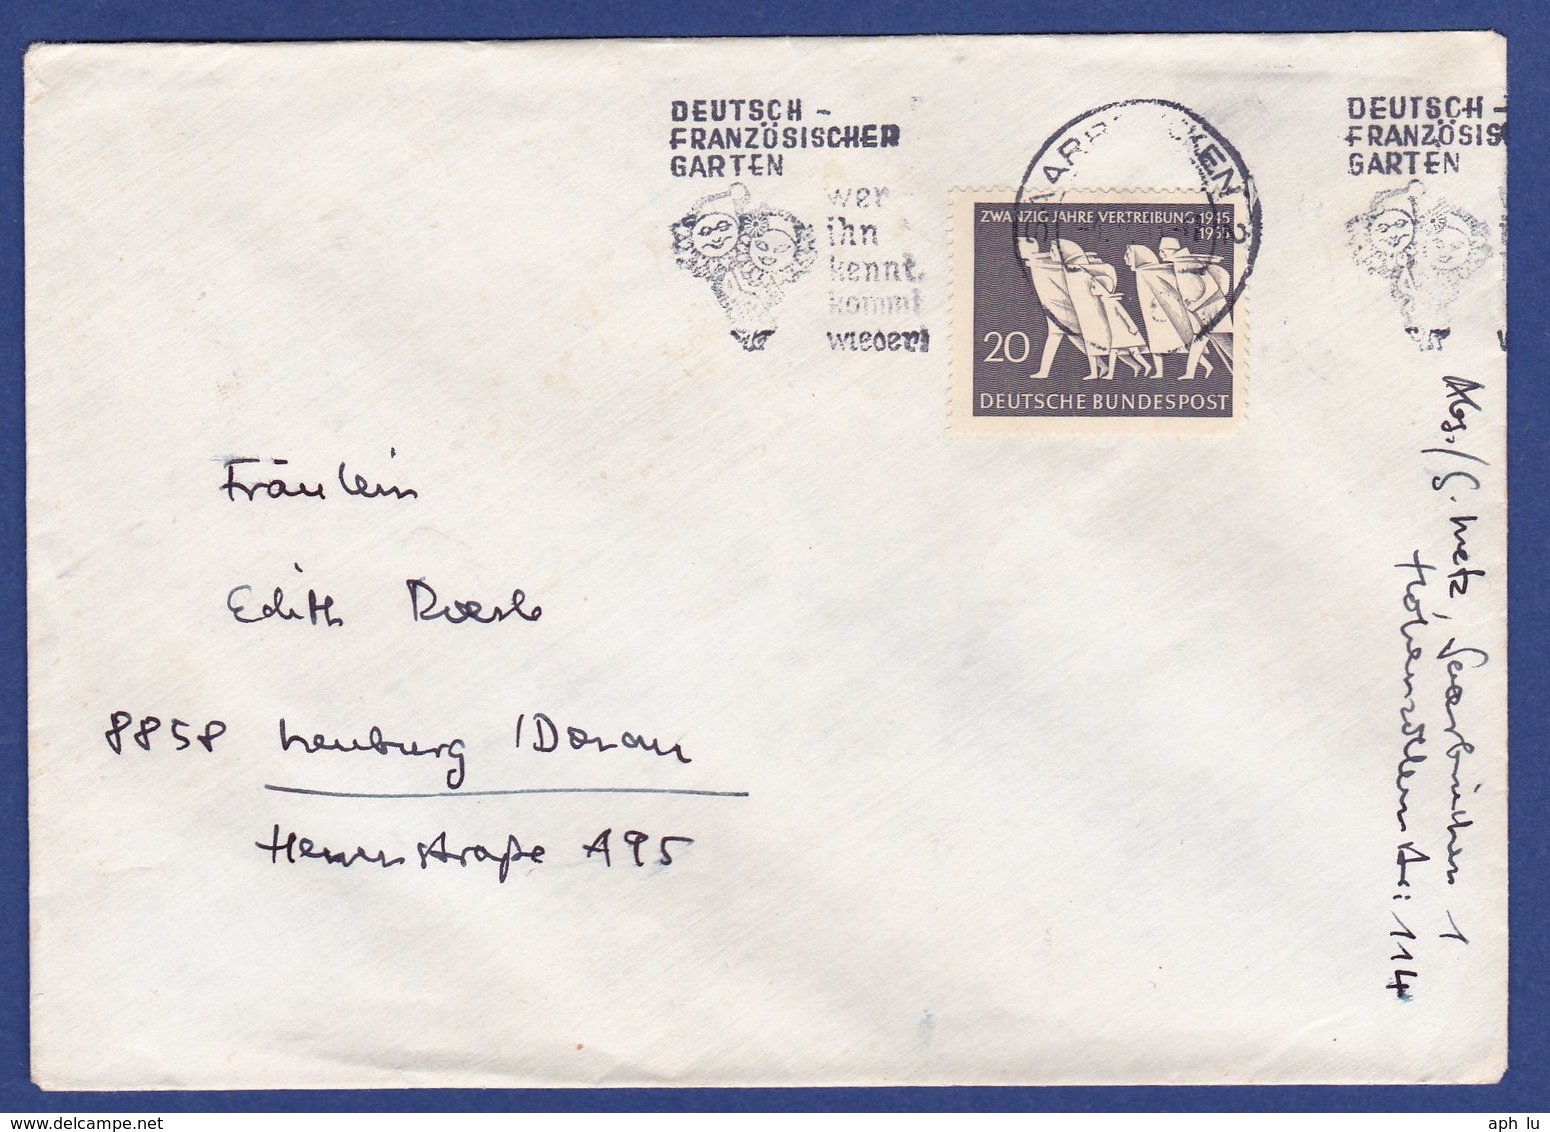 DEUTSCH -
FRANZÖSISCHER
GARTEN
wer
ihn
kennt,
kommt
wieder!
SAARBRÜCKEN 2
ZWANZIG JAHRE VERTREIBUNG 1945
1965
20
DEUTSCHE BUNDESPOST
DEUTSCH -
FRANZÖSIS
GARTEN
w
Fräulein
Edith
8858 Neuburg /Donau
Herrenstraße A95
Abs./ G. Metz, Saarbrücken 1
Hohenzollernstr. 114
www.delcampe.net
aph lu